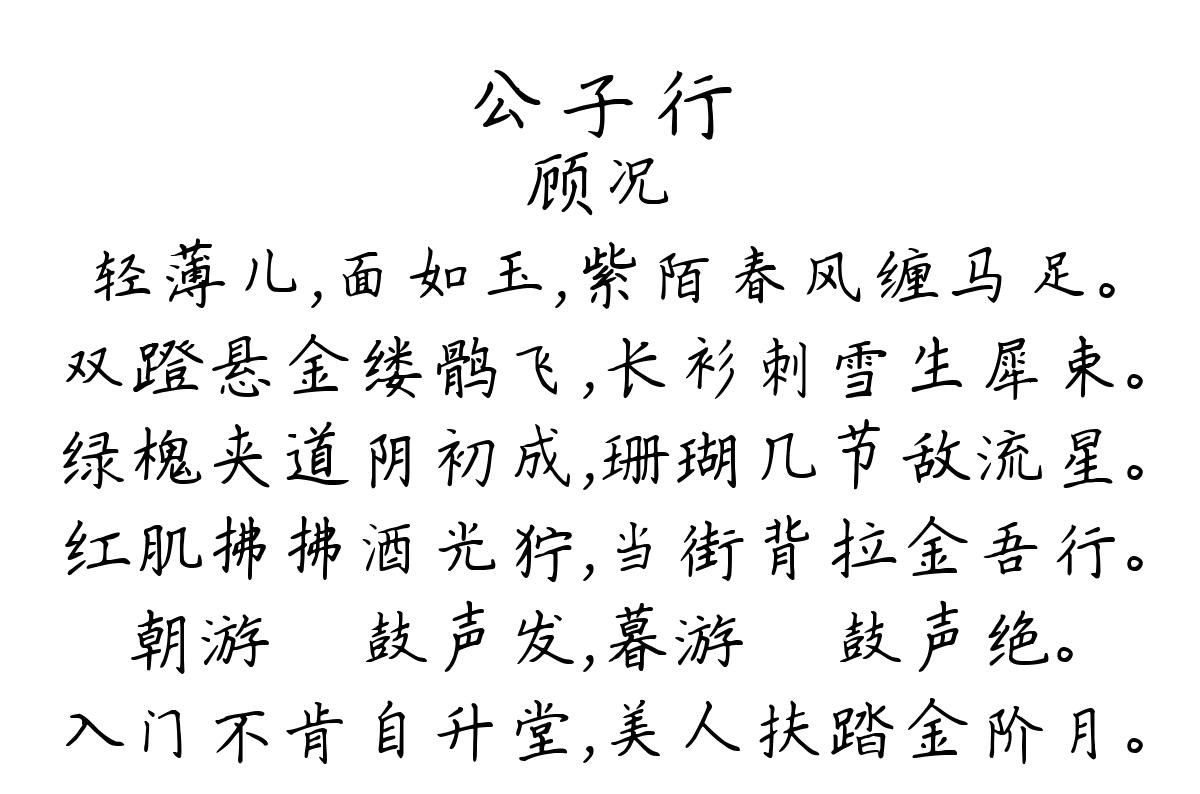 公子行
顾况
轻薄儿,面如玉,紫陌春风缠马足。
双蹬悬金缕鹘飞,长衫刺雪生犀束。
绿槐夹道阴初成,珊瑚几节敌流星。
红肌拂拂酒光狞,当街背拉金吾行。
朝游 鼓声发,暮游 鼓声绝。
入门不肯自升堂,美人扶踏金阶月。